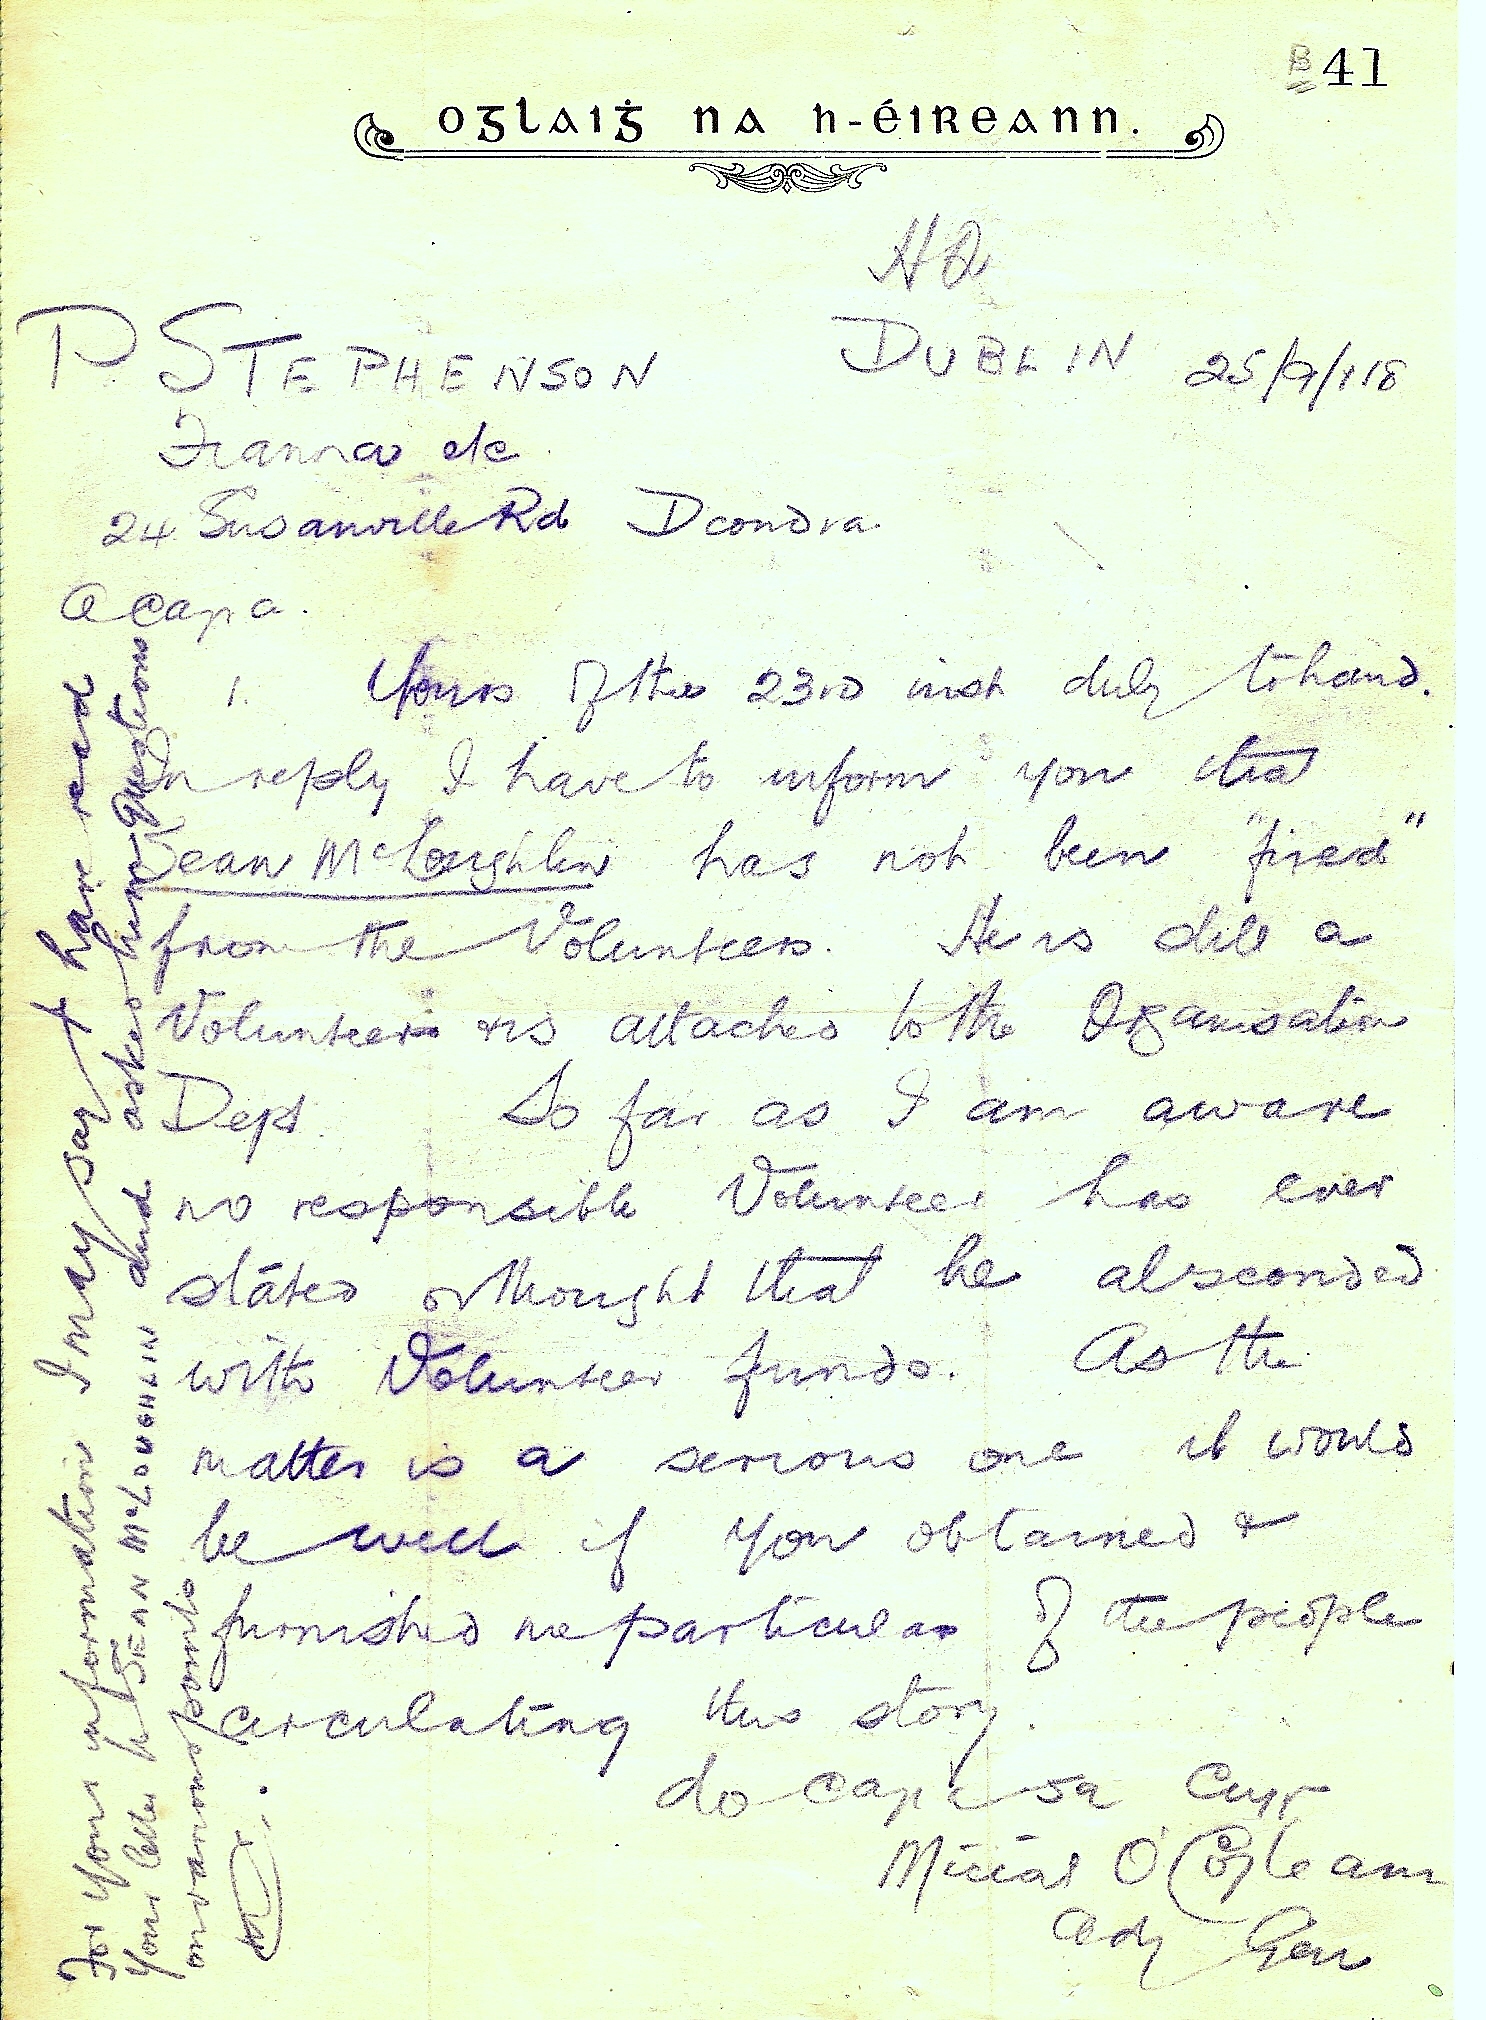 B 41
Óglaiġ na h-Éireann.
HQ
P STEPHENSON DUBLIN 25/9/18
Fianna etc
24 Susanville Rd Dcondra
A Cara.
1. Yours of the 23rd inst duly to hand.
In reply I have to inform you that
Sean McLoughlin has not been "fired"
from the Volunteers. He is still a
Volunteer & is attached to the Organisation
Dept. So far as I am aware
no responsible Volunteer has ever
stated or thought that he absconded
with Volunteer funds. As the
matter is a serious one it would
be well if you obtained &
furnished me particulars of the people
circulating this story.
do cara sa
Mícéal Ó Coıleaın
Adj Gen
For your information I may say I have read
your letter to SEAN McLOUGHLIN and asked him questions
on various points